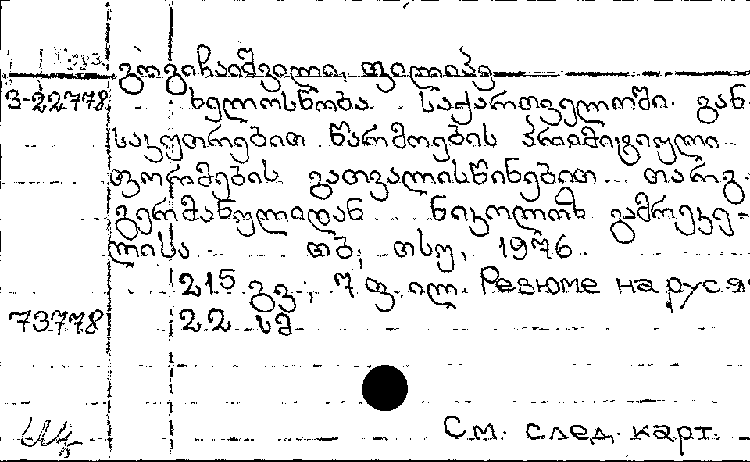 Груз.
გოგიჩაიშვილი, ფილიპე
3-22778 ხელოსნობა საქართველოში გან-
საკუთრებით წარმოების პრიმიტიული
ფორმების გათვალისწინებით თარგ.
გერმანულიდან ნიკოლოზ გამრეკე-
ლისა თბ., თსუ, 1976
215 გვ., 7 ფ. ილ. Резюме на рус яз
73778 22 სმ
См. след. карт.